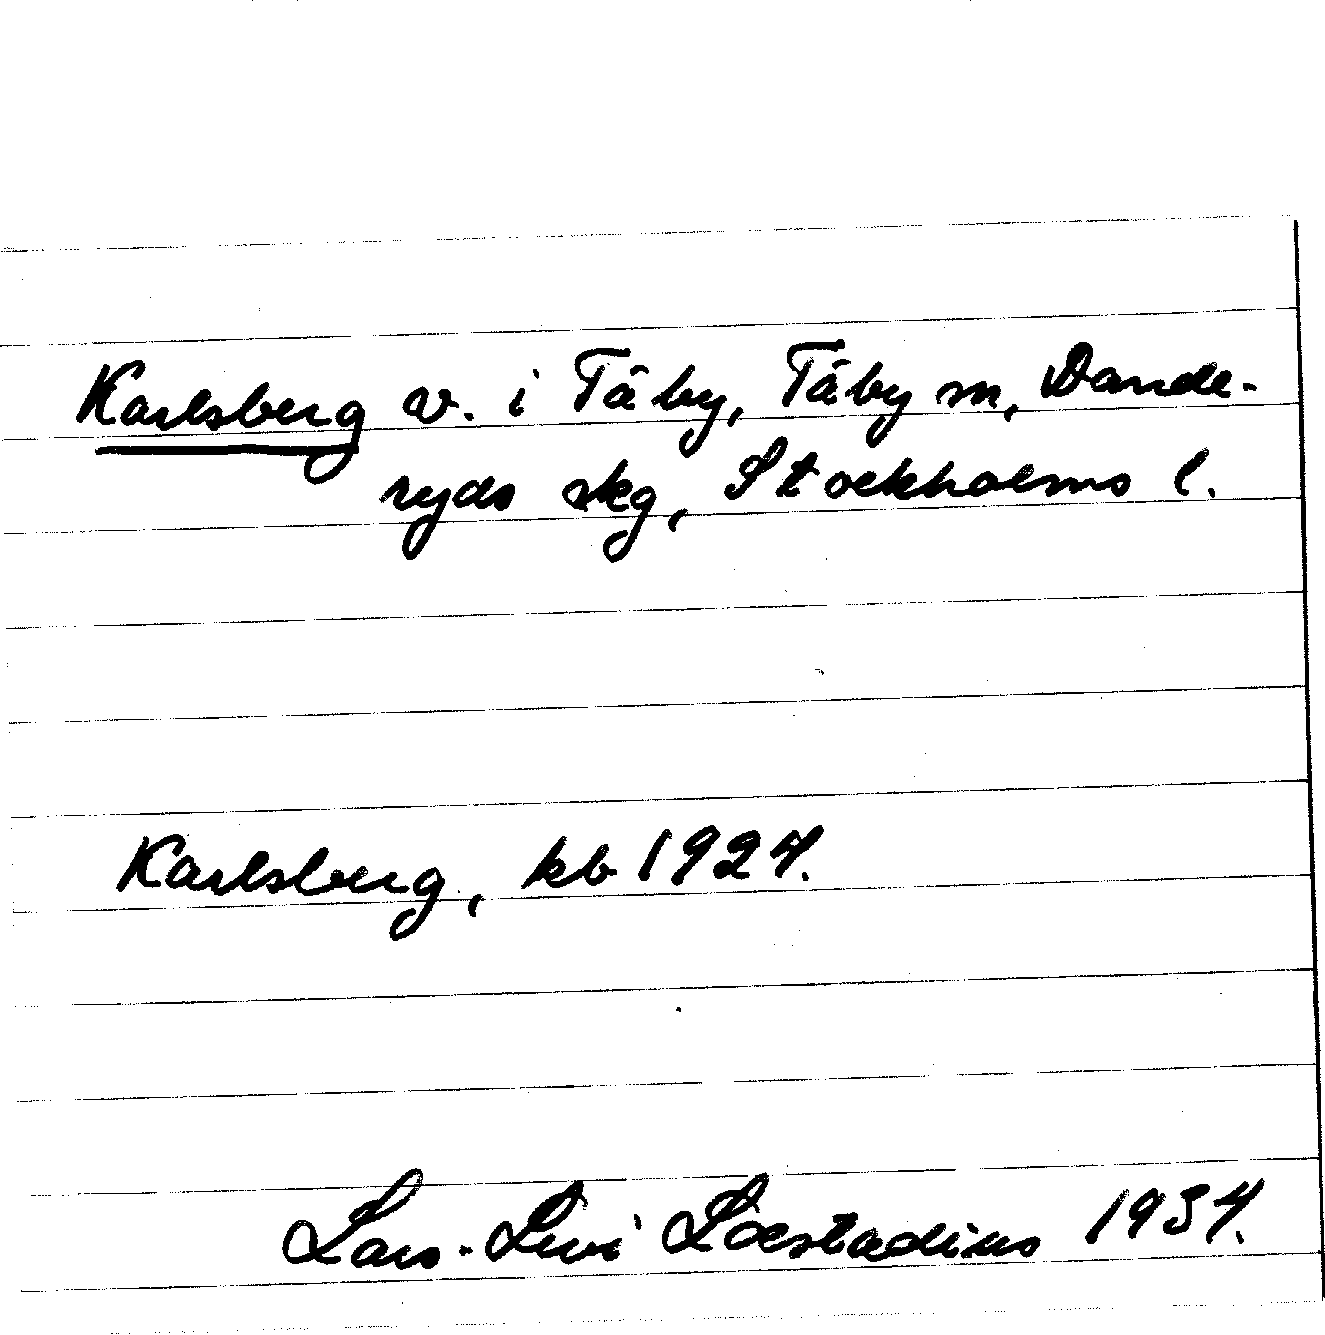 Karlsberg v. i Täby, Täby sn, Dande-
ryds skg, Stockholms l.
Karlsberg, kb 1924.
Lars-Levi Læstadius 1934.